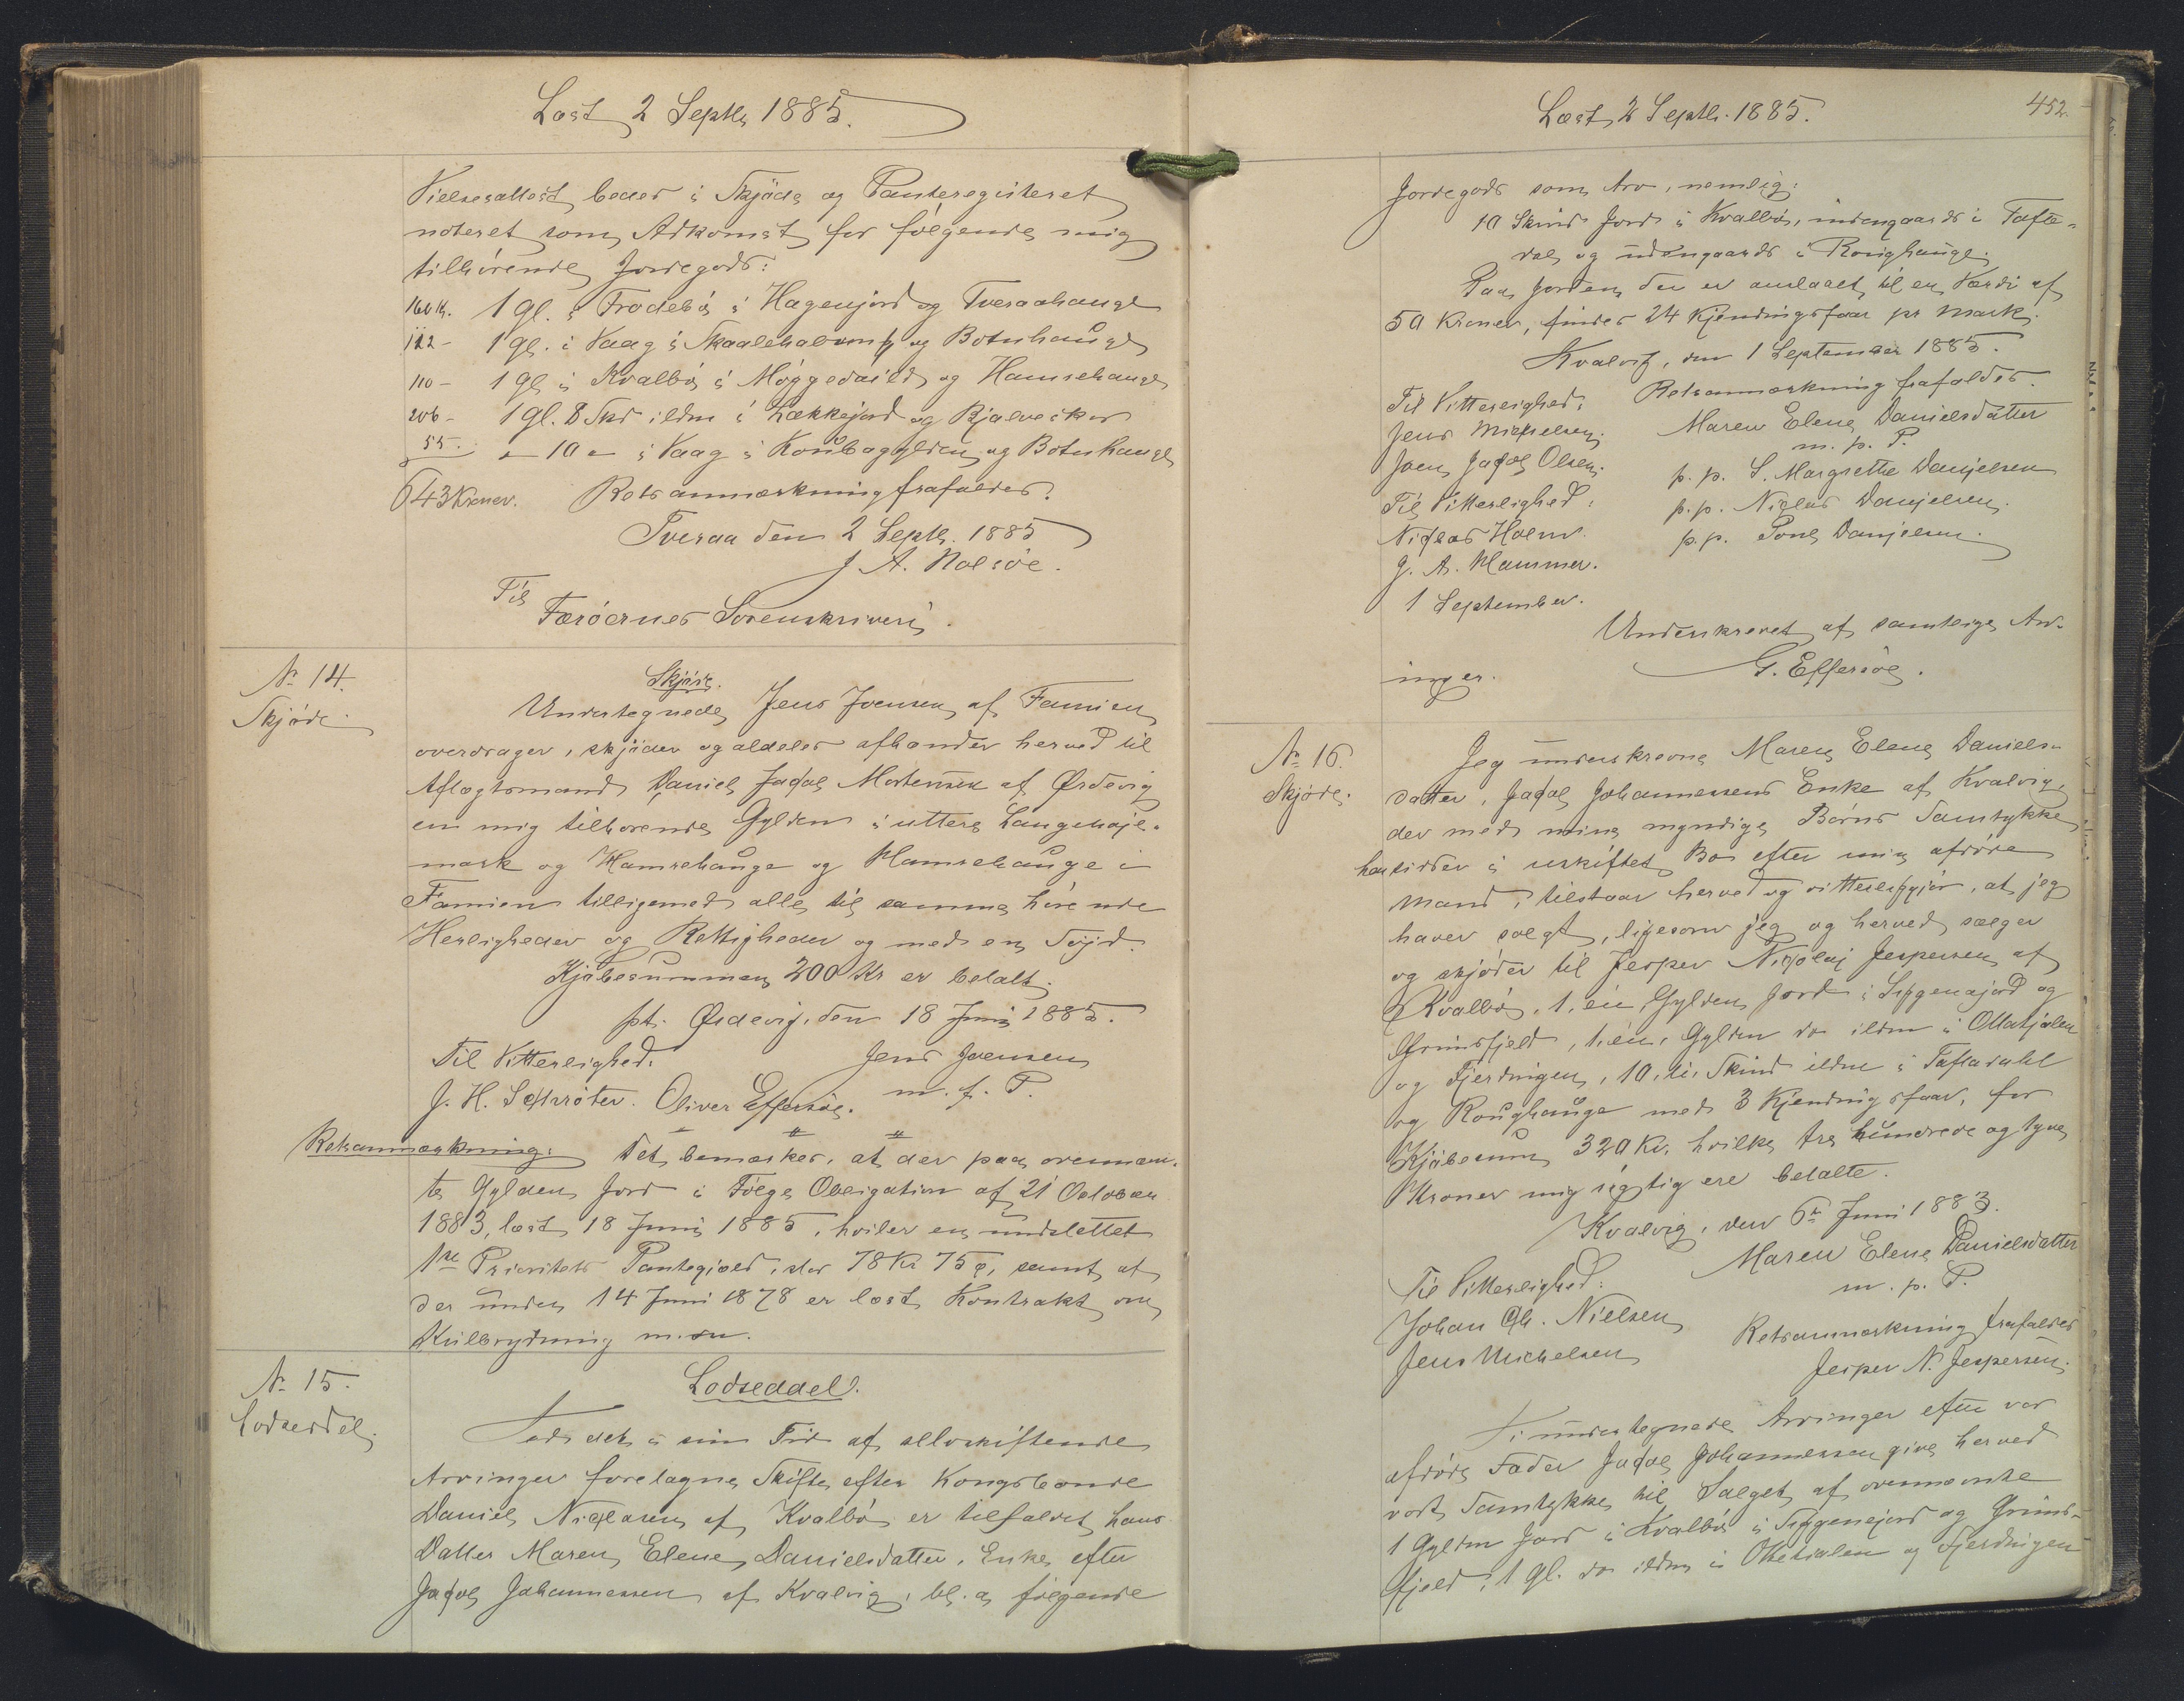 Læst 2 Septb 1885.
Vielsesattest bedes i Skjøde og Panteregisteret
noteret som Adkomst for følgende mig
tilhørende Jordegods:
160 K. 1 gl. i Frodebø i Hagenjord og Tveraahauge
112 - 1 gl. i Vaag i og Botnhauge
110 - 1 gl i Kvalbø i og Hamrehauge
206 - 1 gl. 8 Skd ildm i Løkkejord og
55. - 10 - i Vaag i og Botnhauge
643 Kroner. Retsanmærkning frafaldes.
Tveraa den 2 Septb. 1885
J. A. Nolsøe.
Til
Færøernes Sorenskriveri.
No 14.
Skjøde
Skjøde.
Undertegnede Jens Joensen af Famien
overdrager, skjøder og aldeles afhænder herved til
Aflægtsmand Daniel Jacob Mortensen af Ørdevig
en mig tilhørende Gylden i uttere Langehøje-
mark og Hamrehauge og Hamrehauge i
Famien tilligemed alle til samme hørende
Herligheder og Rettigheder og med en
Kjøbesummen 200 Kr er betalt.
pt. Ørdevig, den 18 Juni 1885.
Til Vitterlighed: Jens Joensen
J. H. Schrøter. Oliver Effersøe. m. f. P.
Retsanmærkning: Det bemærkes, at der paa ovennævn-
te Gylden Jord i Følge Obligation af 21 October
1883, læst 18 Juni 1885, hviler en uudslettet
1ste Prioritets Pantegjæld, stor 78 Kr 75 Ø, samt at
der under 14 Juni 1878 er læst Kontrakt om
Kulbrydning m. m.
No 15.
Lodseddel.
Lodseddel.
Ved det i sin Tid af selvskiftende
Arvinger foretagne Skifte efter Kongsbonde
Daniel Niclasen af Kvalbø er tilfaldet hans
Datter Maren Elene Danielsdatter, Enke efter
Jacob Johannessen af Kvalvig, bl. a. følgende
Læst 2 Septb. 1885.
452.
Jordegods som Arv, nemlig:
10 Skind Jord i Kvalbø, indengaards i Tofte-
dal og udengaards i Roughauge.
Paa Jorden, der er anslaaet til en Værdi af
50 Kroner, findes 24 Kjendingsfaar pr Mark.
Kvalvig, den 1 September 1885.
Til Vitterlighed: Retsanmærkning frafaldes.
Jens Michelsen. Maren Elene Danielsdatter
m. p. P.
Joen Jacob Olsen. p. p. S. Margrethe Danjelsen
Til Vitterlighed: p. p. Niclas Danjelsen.
Niclas Holm. p. p. Poul Danjelsen.
J. A. Hammer.
1 September.
Underskrevet af samtlige Arv-
inger. G. Effersøe.
No 16.
Skjøde.
Jeg underskrevne Maren Elene Daniels-
datter, Jacob Johannessens Enke af Kvalvig,
der med mine myndige Børns Samtykke
har sidder i uskiftet Bo efter min afdøde
Mand, tilstaar herved og vitterliggjør, at jeg
haver solgt, ligesom jeg og herved sælger
og skjøder til Jesper Nicolaj Jespersen af
Kvalbø, 1, én Gylden Jord i Siggenajord og
Grimsfjeld, 1, én, Gylden do ildm i
og Fjerdingen, 10, ti, Skind ildm i Toftadahl
og Roughauge med 3 Kjendingsfaar, for
Kjøbesum 320 Kr. hvilke tre hundrede og tyve
Kroner mig rigtig ere betalte.
Kvalvig, den 6te Juni 1883.
Maren Elene Danielsdatter
Til Vitterlighed: m. p. P.
Johan Chr. Nielsen Retsanmærkning frafaldes
Jens Michelsen Jesper N. Jespersen.
Vi undertegnede Arvinger efter vor
afdøde Fader Jacob Johannessen give herved
vort Samtykke til Salget af ovennævnte
1 Gylden Jord i Kvalbø i Siggenejord og Grims-
fjeld, 1 gl. do ildm i og Fjerdingen